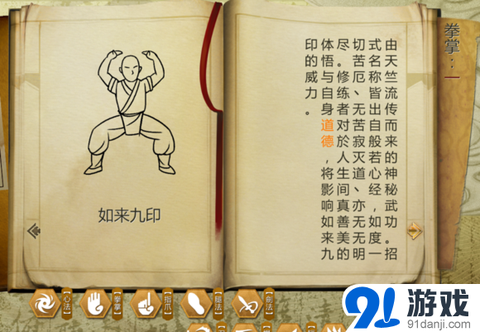 拳掌:一
由天竺流传而来的神秘武功。招
式名称皆出自般若心经,如度一
切苦厄、无苦寂灭道、亦无无明
尽。修练者对於人生间真善美的
体悟与自身道德,将影响如来九
印的威力。
如来九印
心法
拳掌
指爪
腿法
91游戏
91danji.com